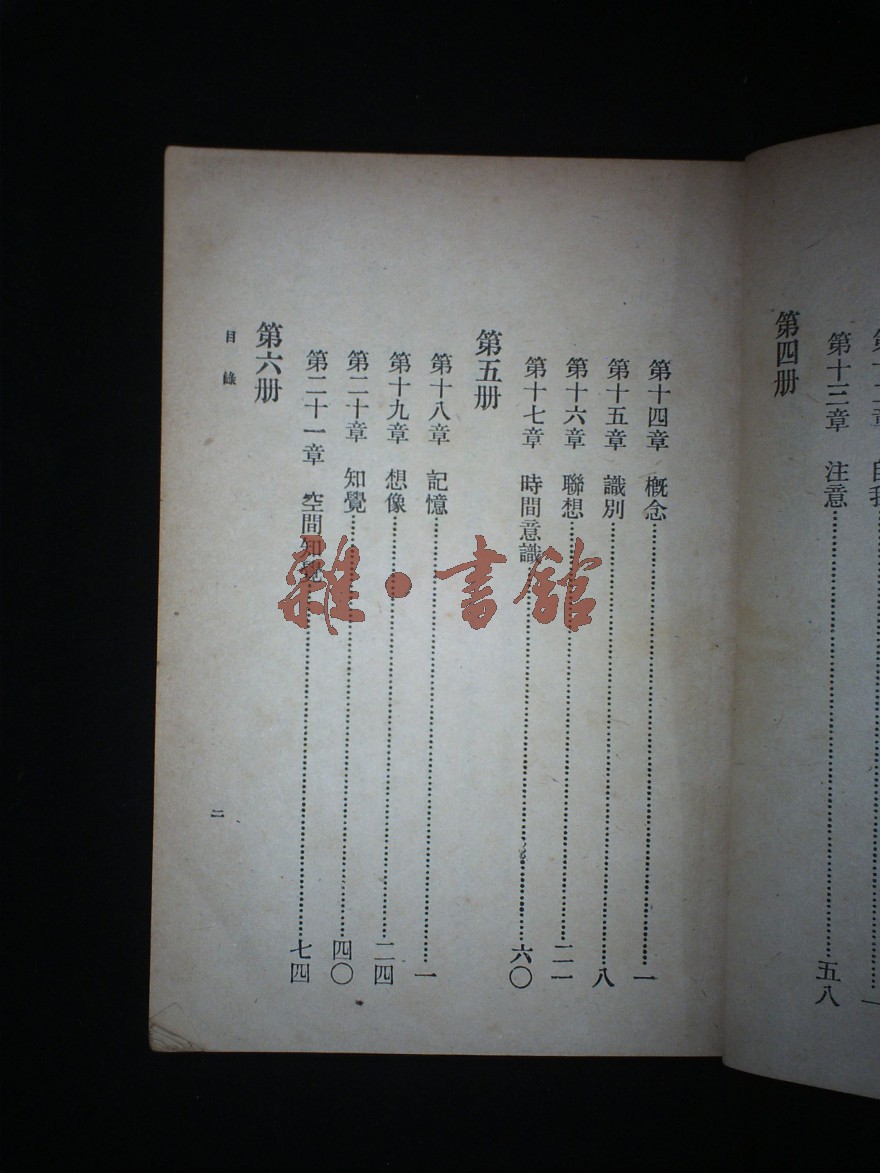 第十二章 自我……一
第十三章 注意……五八
第四册
第十四章 槪念……一
第十五章 識別……八
第十六章 聯想……二一
第十七章 時間意識……六〇
第五册
第十八章 記憶……一
第十九章 想像……二四
第二十章 知覺……四〇
第二十一章 空間知覺……七四
第六册
目錄
二
雜·書館